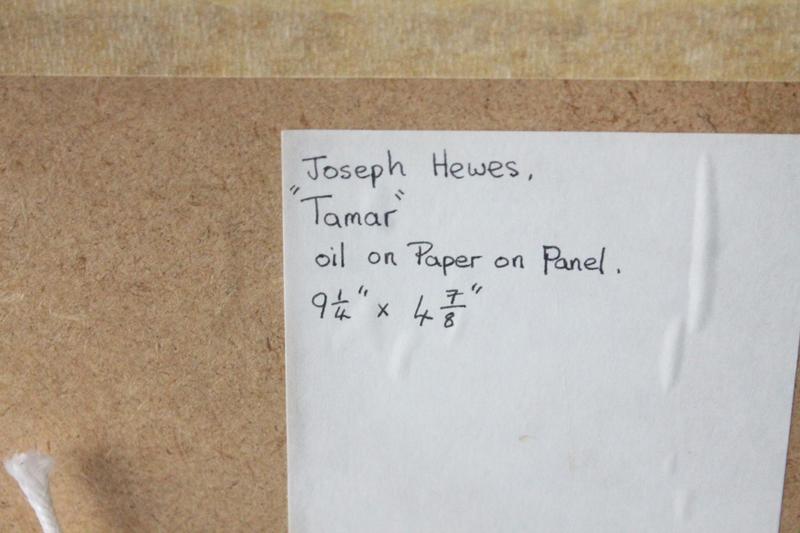 Joseph Hewes,
"Tamar"
oil on Paper on Panel.
9 1/4" x 4 7/8"